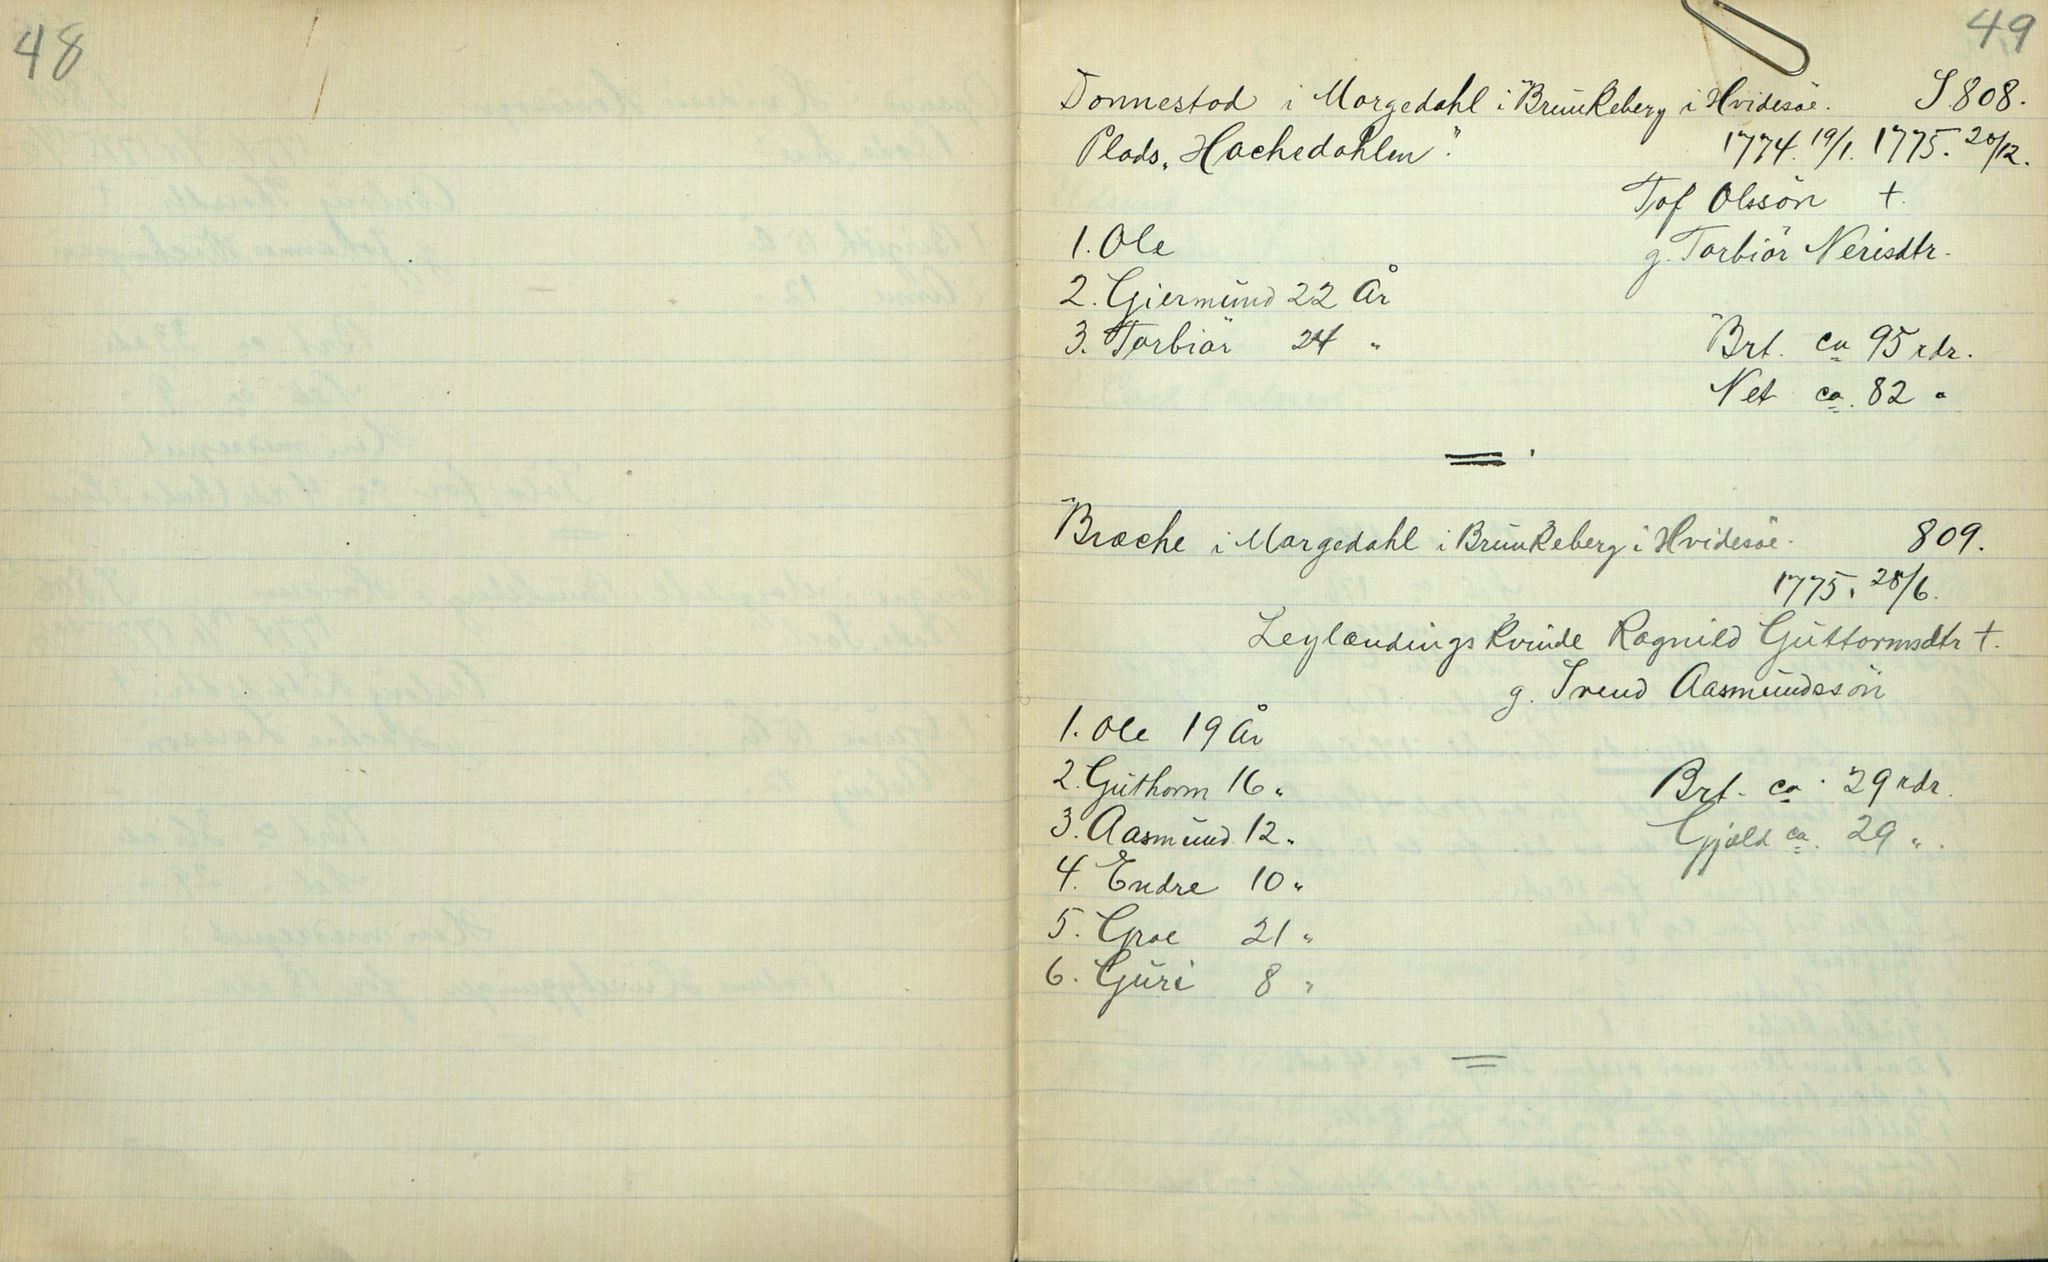 48
49
Donnestad i Morgedahl i Brunkeberg i Hvidesöe. S. 808.
Plads „Hachedahlen". 1774. 19/1. 1775. 20/12.
Tof Olssön †.
1. Ole g. Torbiör Nerisdtr.
2. Giermund 22 År
3. Torbiör 24 "
Brt. ca 95 rdr.
Net ca. 82 "
Bræche i Morgedahl i Brunkeberg i Hvidesöe. 809.
1775. 28/6.
Leylændingskvinde Ragnild Guttormsdtr †.
g. Svend Aasmundssön
1. Ole 19 År
2. Guthorm 16 "
Brt. ca. 29 rdr.
3. Aasmund 12 "
Gjæld ca. 29 ".
4. Endre 10 "
5. Groe 21 "
6. Guri 8 "